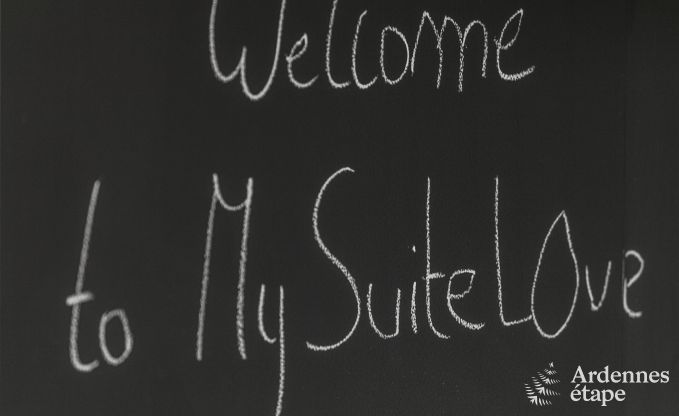 Welcome
to MySuiteLove
Ardennes
étape